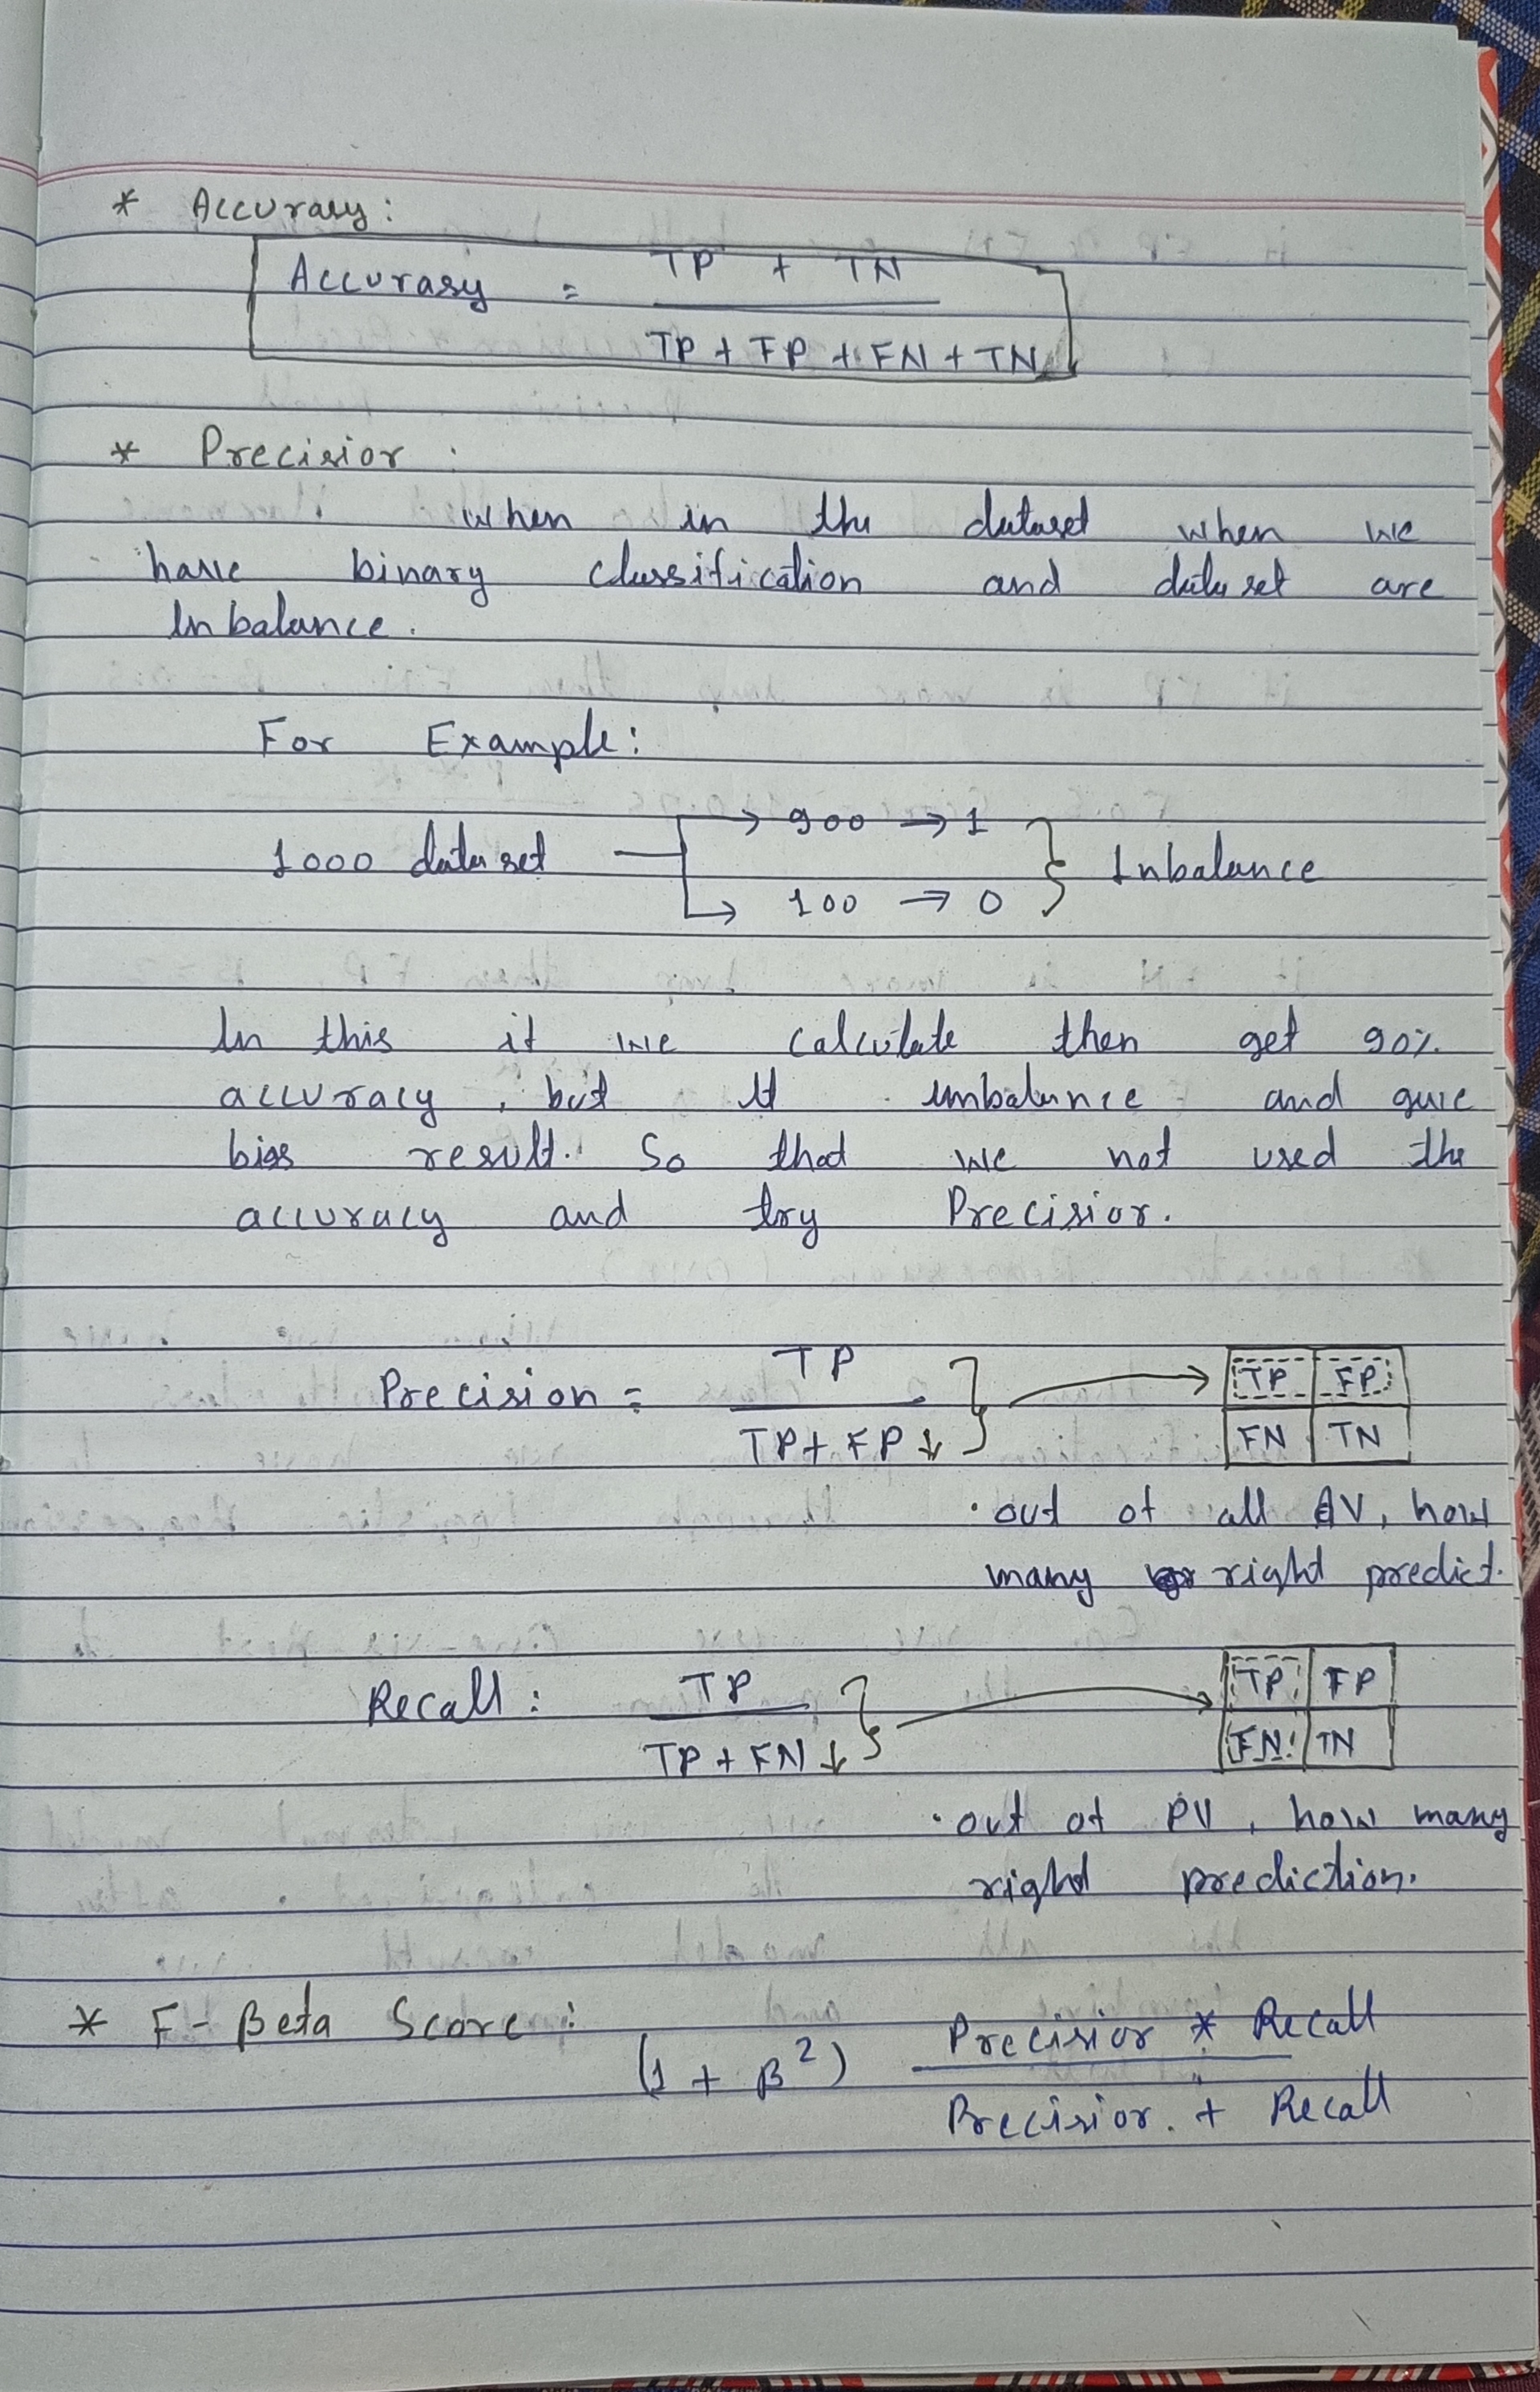 * Accuracy:
Accurasy = TP + TN
TP + FP + FN + TN
* Precisior :
when in the dataset when we
have binary classification and data set are
Inbalance.
For Example:
1000 data set → 900 → 1 } Inbalance
→ 100 → 0
In this if we calculate then get 90%
accuracy, but it imbalance and give
bias result. So that we not used the
accuracy and try Precisior.
Precision = TP
TP + FP ↓
TP FP
FN TN
• out of all AV, how
many right predict.
Recall : TP
TP + FN ↓
TP FP
FN TN
• out of PV, how many
right prediction.
* F-Beta Score : (1 + β²) Precisior * Recall
Precisior. + Recall